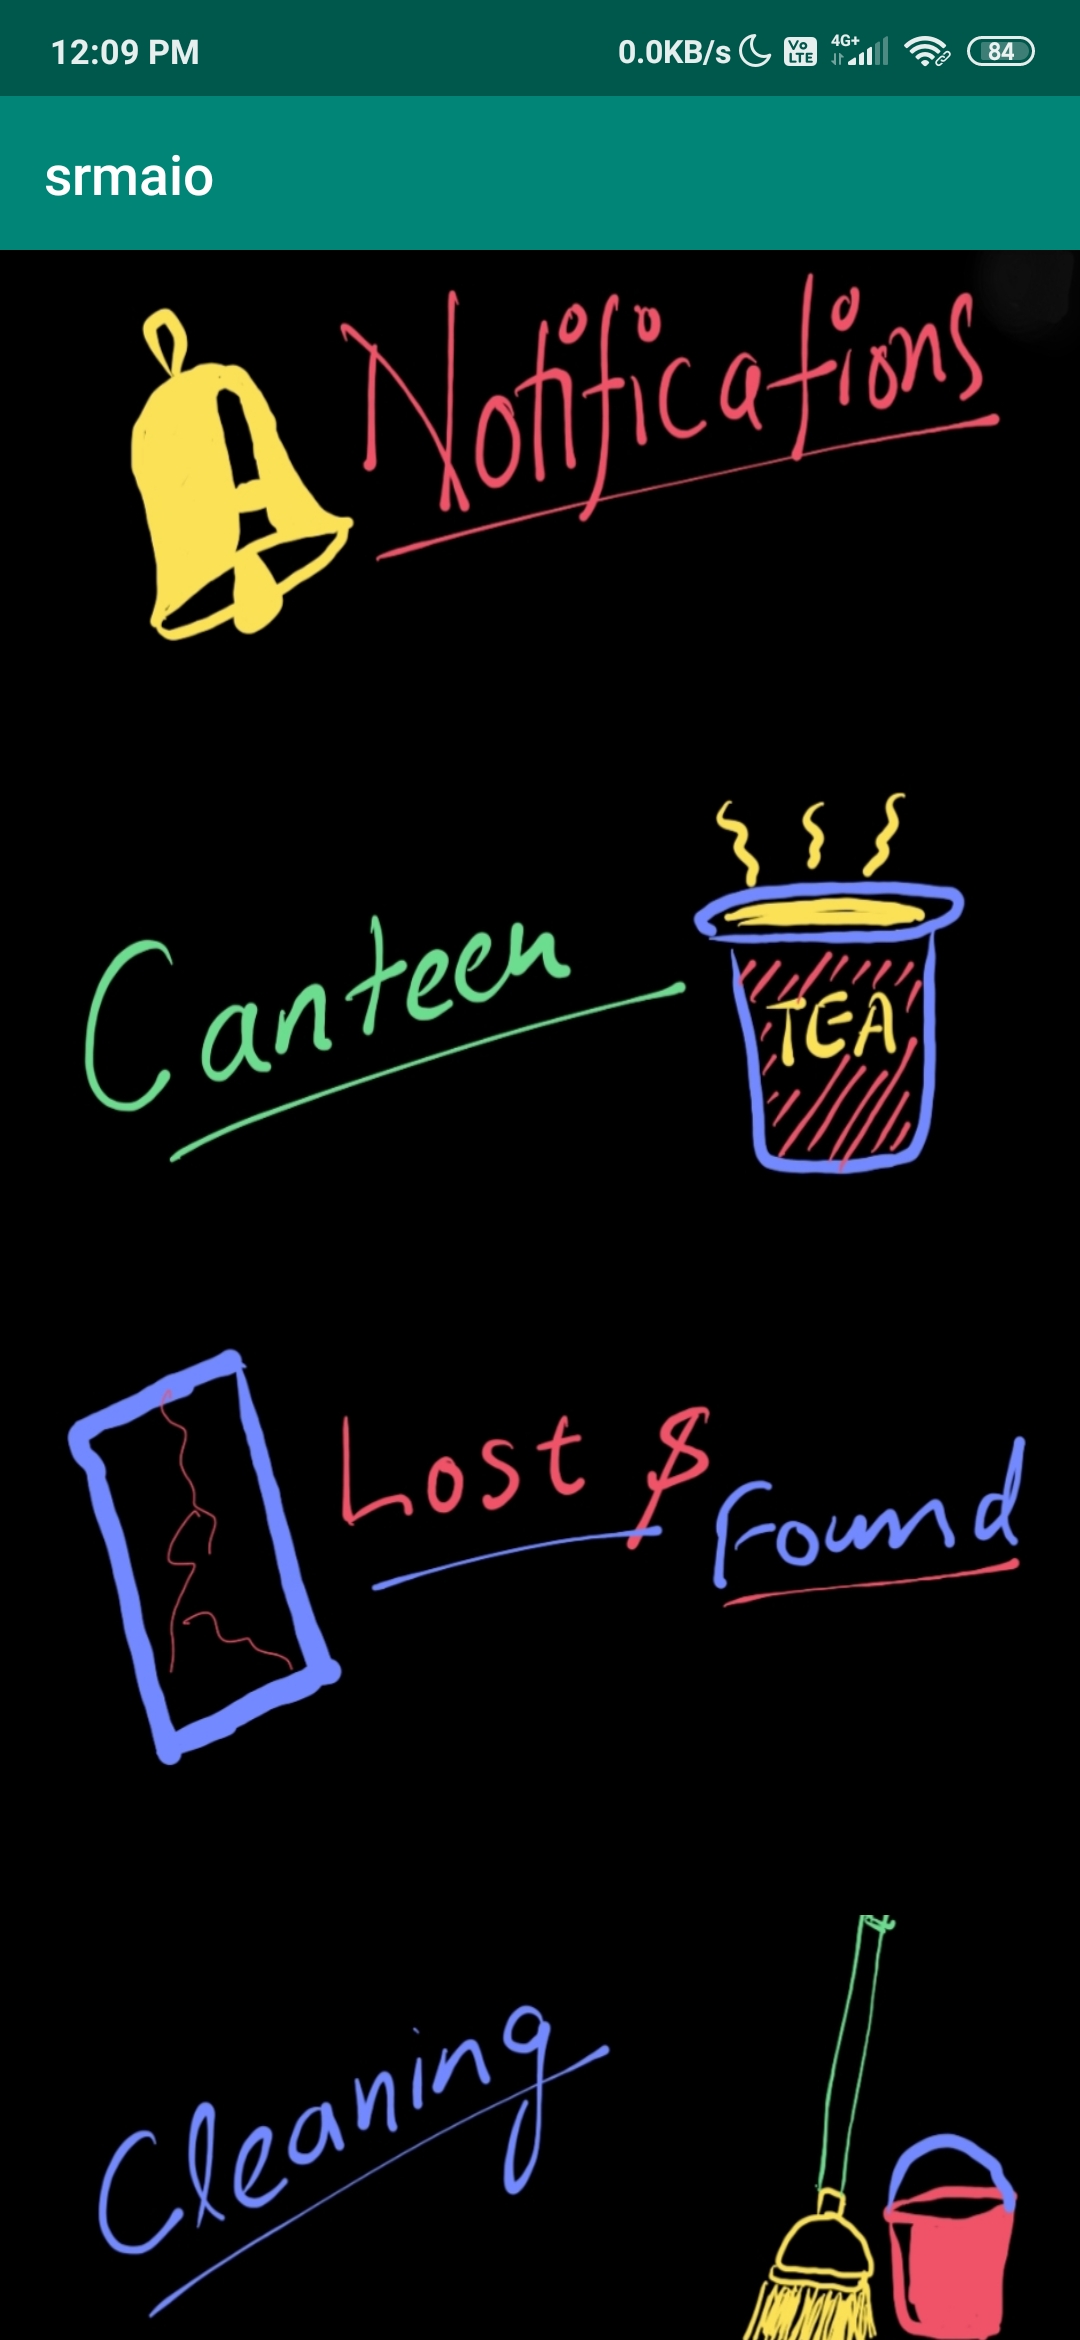 12:09 PM 0.0KB/s Vo LTE 4G+ 84
srmaio
Notifications
Canteen
TEA
Lost $ Found
Cleaning